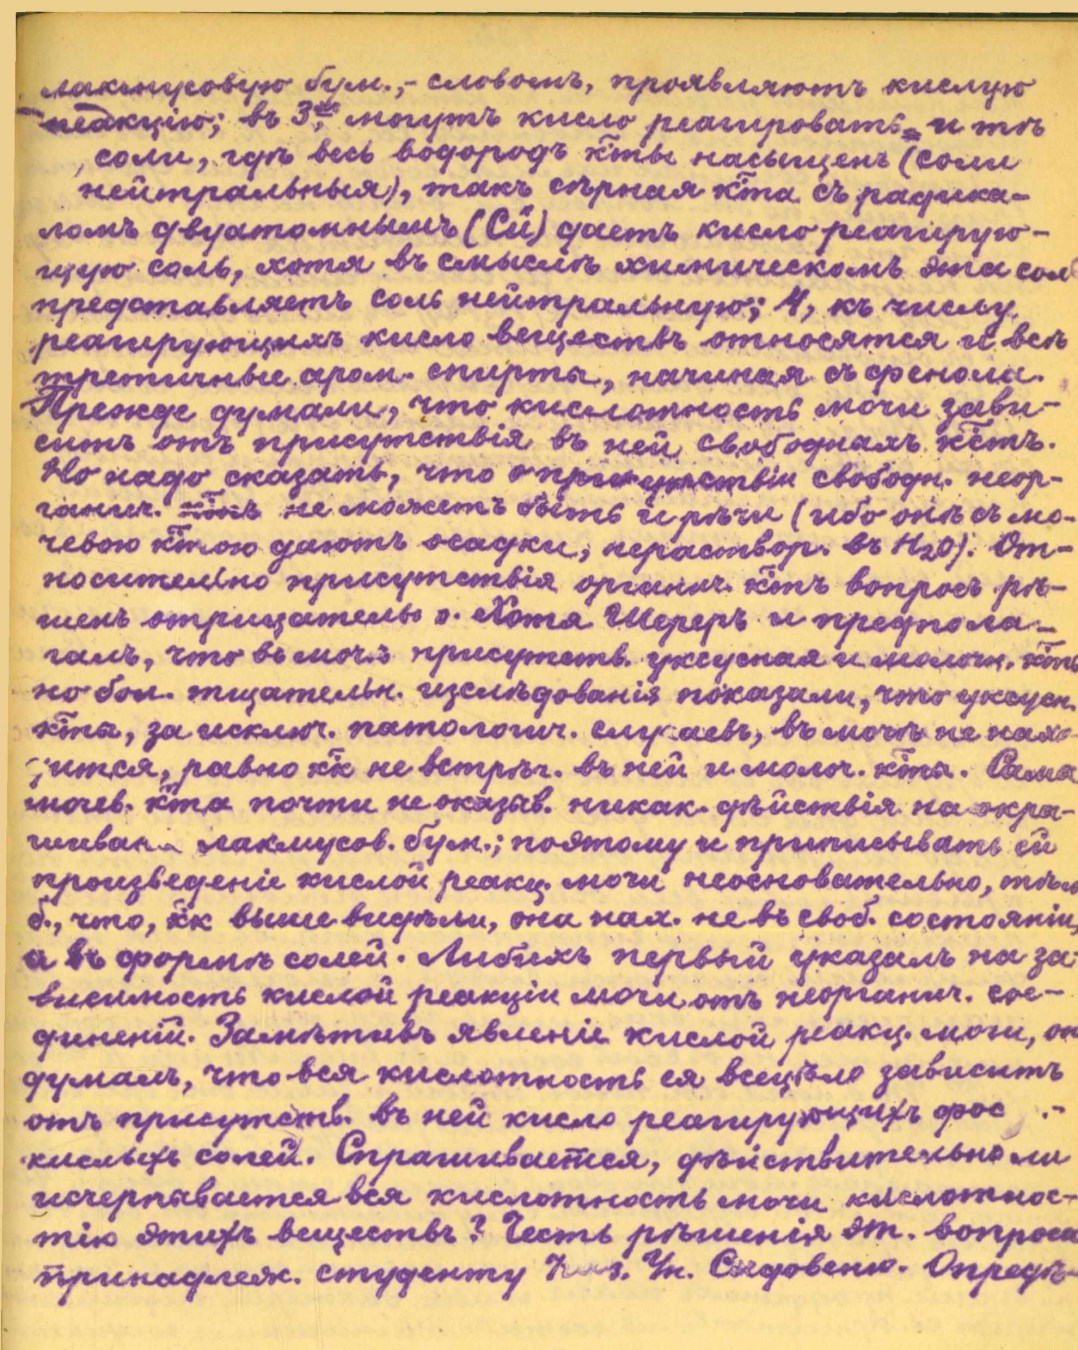 лакмусовую бум., - словомъ, проявляютъ кислую
реакцію; въ 3хъ, могутъ кисло реагировать и тѣ
соли, гдѣ весь водородъ к̅ты насыщенъ (соли
нейтральныя), такъ сѣрная к̅та съ радика-
ломъ двуатомнымъ (Cu̎) даетъ кисло реагирую-
щую соль, хотя въ смыслѣ химическомъ эта сол
представляетъ соль нейтральную; 4, къ числу
реагирующихъ кисло веществъ относятся и всѣ
третичные аром. спирты, начиная съ фенола.
Прежде думали, что кислотность мочи зави-
ситъ отъ присутствія въ ней свободныхъ к̅тъ.
Но надо сказать, что о присутствіи свободн. неор-
ганич. к̅тъ не можетъ быть и рѣчи (ибо онѣ съ мо-
чевою к̅тою даютъ осадки, нераствор. въ H2O). От-
носительно присутствія органич. к̅тъ вопросъ рѣ-
шенъ отрицательно. Хотя Шереръ и предпола-
галъ, что въ мочѣ присутств. уксусная и молочн. к̅ты
но бол. тщательн. изслѣдованія показали, что уксусн.
к̅та, за исключ. патологич. случаевъ, въ мочѣ не нахо-
дится, равно к̅к не встрѣч. въ ней и молоч. к̅та. Сама
мочев. к̅та почти не оказыв. никак. дѣйствія на окра-
шиван лакмусов. бум.; поэтому и приписывать ей
произведеніе кислой реакц. мочи неосновательно, тѣмъ
б., что, к̅к выше видѣли, она нах. не въ своб. состояніи,
а въ формѣ солей. Либихъ первый указалъ на за-
висимость кислой реакціи мочи отъ неорганич. сое-
диненій. Замѣтивъ явленіе кислой реакц. мочи, он
думалъ, что вся кислотность ея всецѣло зависитъ
отъ присутств. въ ней кисло реагирующихъ фос -
кислыхъ солей. Спрашивается, дѣйствительно ли
исчерпывается вся кислотность мочи кислотнос-
тію этихъ веществъ? Честь рѣшенія эт. вопроса
принадлеж. студенту Каз. Ун. Опредѣ-